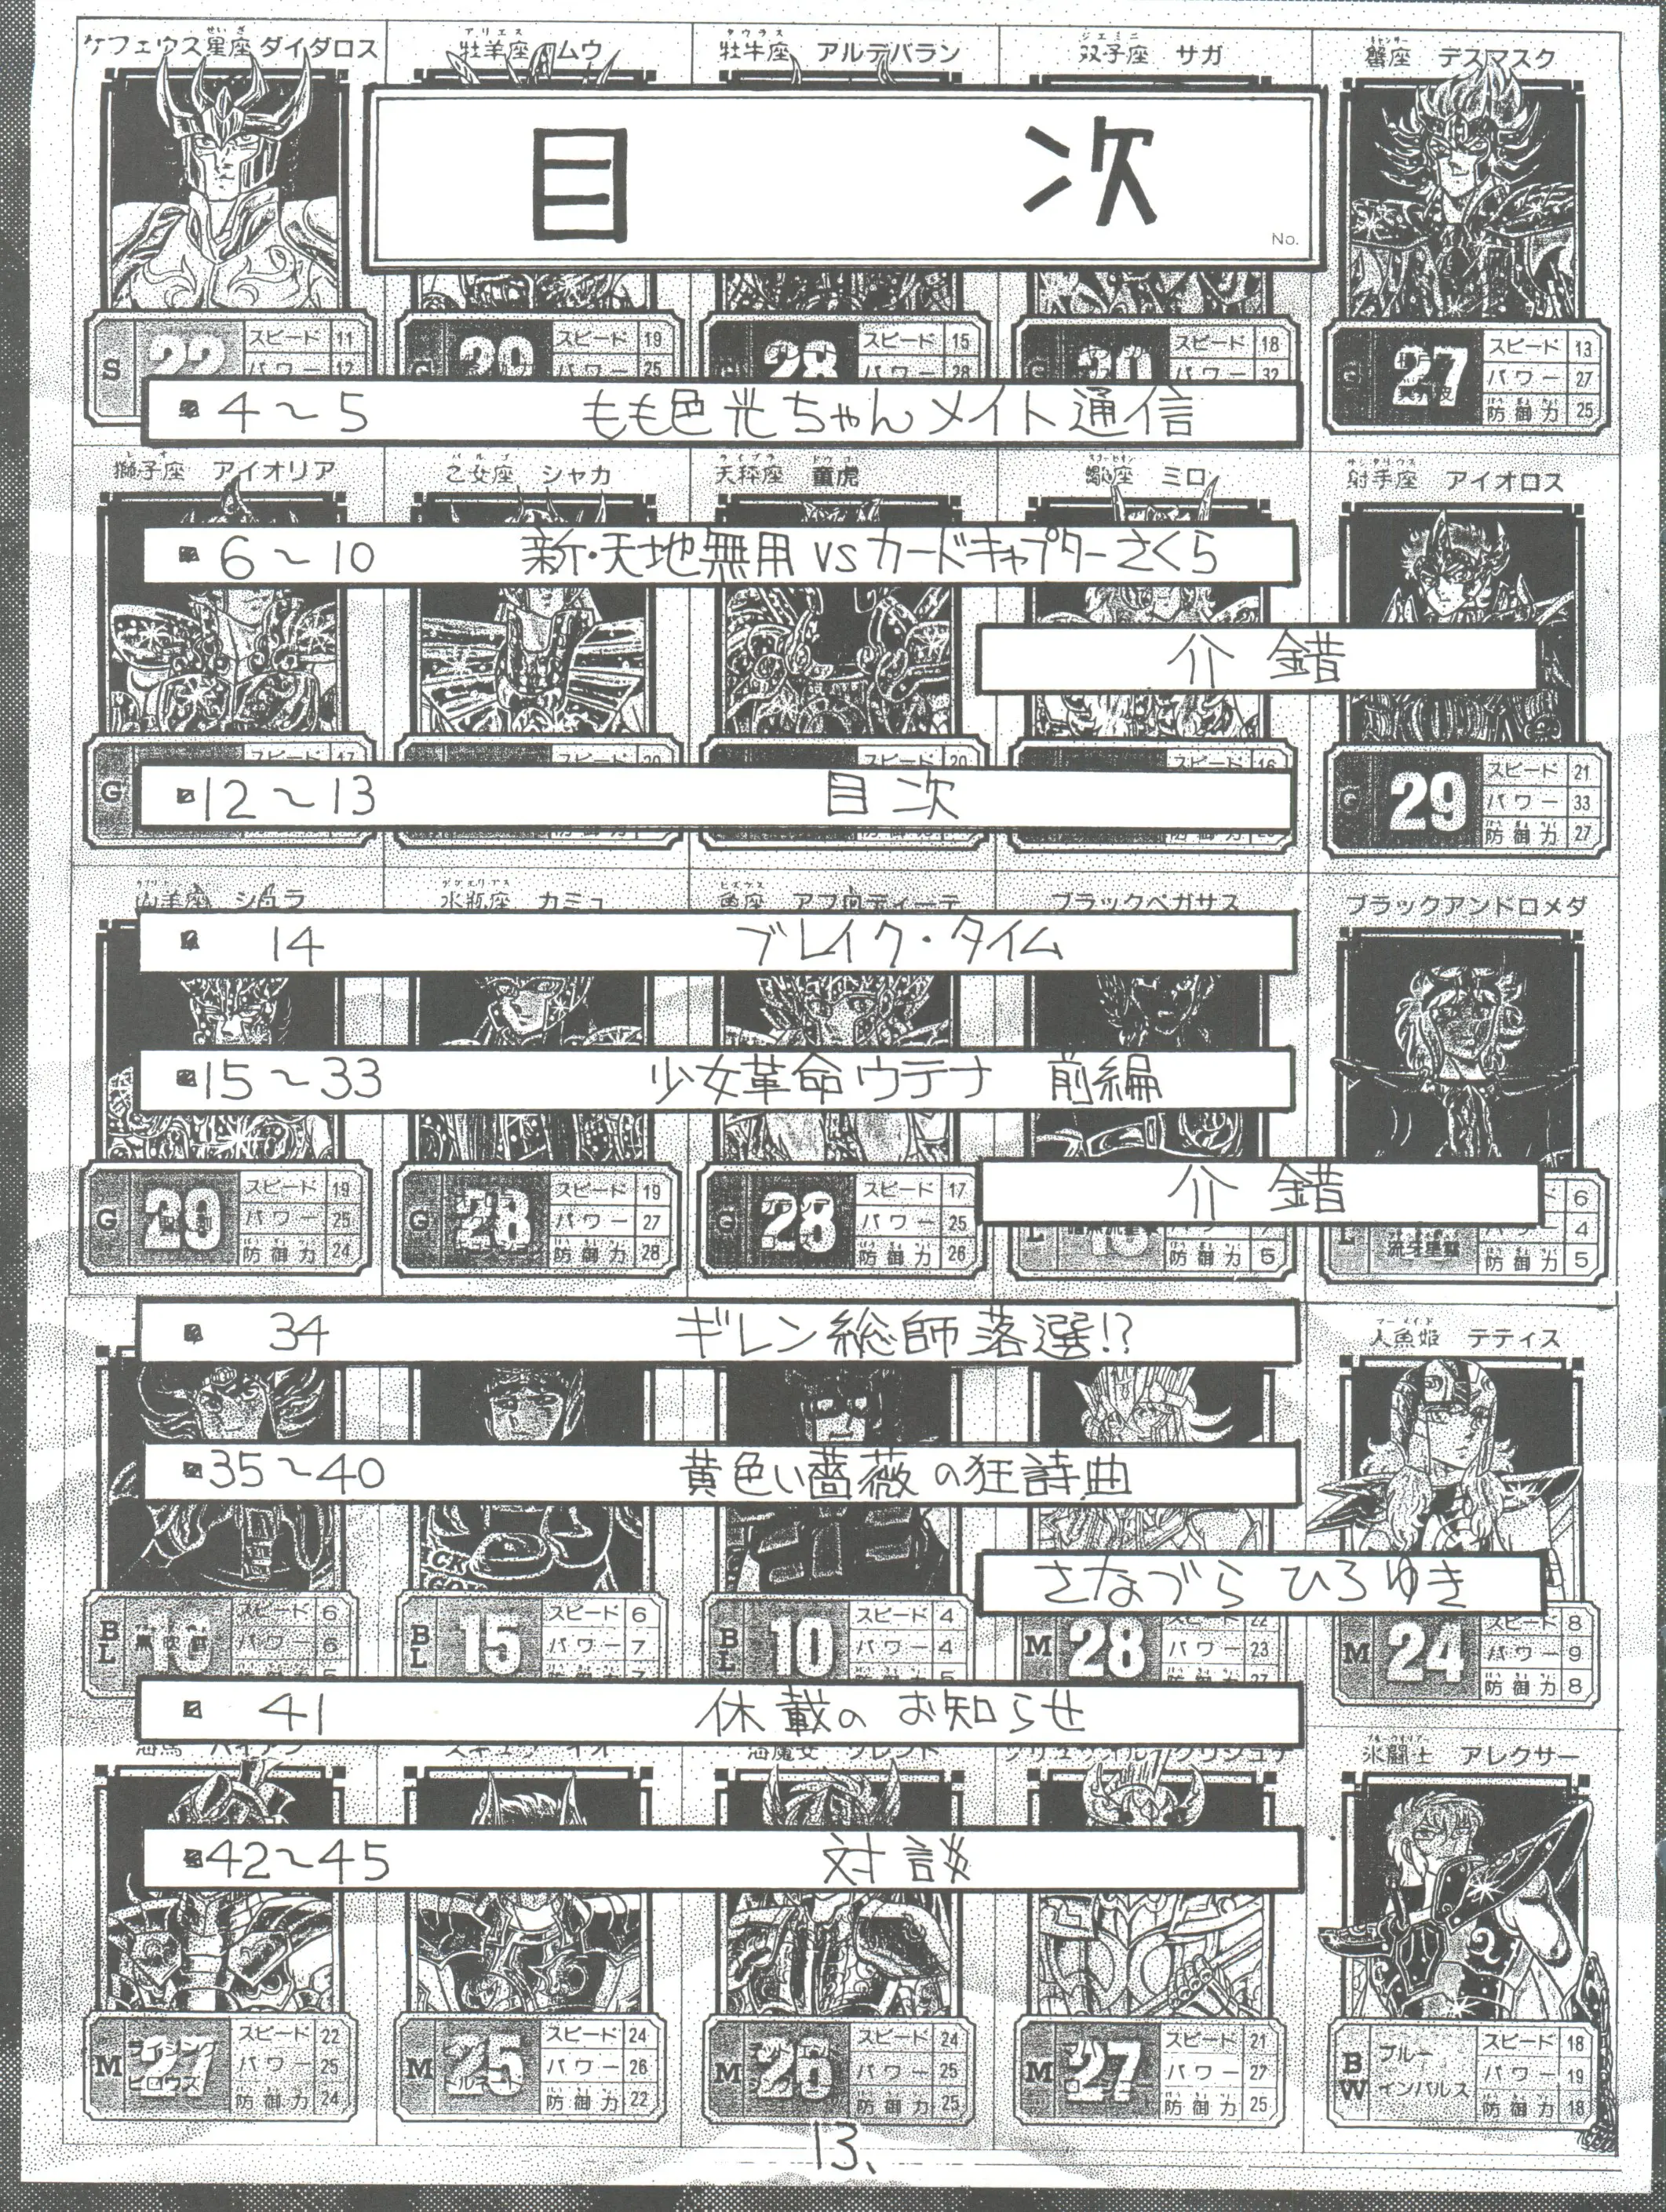 ケフェウス星座 ダイダロス
牡羊座 ムウ
牡牛座 アルデバラン
双子座 サガ
蟹座 デスマスク
目 次
No.
S 22 スピード 11
パワー 12
スピード 19
パワー 25
28 スピード 15
パワー 28
スピード 18
パワー 32
G 27 スピード 13
パワー 27
防御力 25
4〜5 もも色光ちゃんメイト通信
獅子座 アイオリア
乙女座 シャカ
天秤座 童虎
蠍座 ミロ
射手座 アイオロス
6〜10 新・天地無用 vs カードキャプターさくら
介 錯
G スピード 17
スピード 20
スピード 20
スピード 16
G 29 スピード 21
パワー 33
防御力 27
12〜13 目次
山羊座 シュラ
水瓶座 カミュ
魚座 アフロディーテ
ブラックペガサス
ブラックアンドロメダ
14 ブレイク・タイム
15〜33 少女革命ウテナ 前編
介 錯
G 29 スピード 19
パワー 25
防御力 24
G 28 スピード 19
パワー 27
防御力 28
G 28 スピード 17
パワー 25
防御力 26
L 防御力 5
L 6
4
防御力 5
34 ギレン総師落選!?
人魚姫 テティス
35〜40 黄色い薔薇の狂詩曲
さなづら ひろゆき
BL スピード 6
パワー 6
BL 15 スピード 6
パワー 7
BL 10 スピード 4
パワー 4
M 28 スピード 22
パワー 23
M 24 スピード 8
パワー 9
防御力 8
41 休載の お知らせ
氷闘士 アレクサー
42〜45 対談
M 27 スピード 22
パワー 25
防御力 24
M 25 スピード 24
パワー 26
防御力 22
M 26 スピード 24
パワー 25
防御力 25
M 27 スピード 21
パワー 27
防御力 25
BW ブルー
インパルス スピード 18
パワー 19
防御力 18
13、